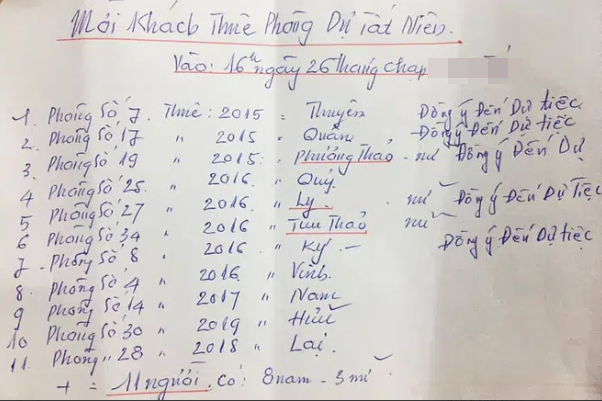 Mời Khách Thuê Phòng Dự Tất Niên.
Vào: 16h ngày 26 tháng chạp
1. Phòng Số 7. Thuê: 2015 = Thuyên Đồng ý Đến Dự tiệc
2. Phòng Số 17 " 2015 " Quân Đồng ý Đến Dự tiệc
3. Phòng Số 19 " 2015. Phương Thảo - nữ Đồng ý Đến Dự
4 Phòng Số 25. " 2016 " Quý.
5 Phòng Số 27 " 2016. " Ly. nữ Đồng ý Đến Dự Tiệc
6 Phòng Số 34 " 2016 " Thu Thảo nữ
7 - Phòng Số 8 " 2016. " Ký - Đồng ý Đến Dự tiệc
8. Phòng Số 4 " 2016 " Vinh.
9 Phòng Số 14 " 2017 " Nam
10 Phòng Số 30 " 2019 " Hữu
11. Phòng " 28 " 2018 " Lại.
+ = 11 người. Có: 8 nam - 3 nữ